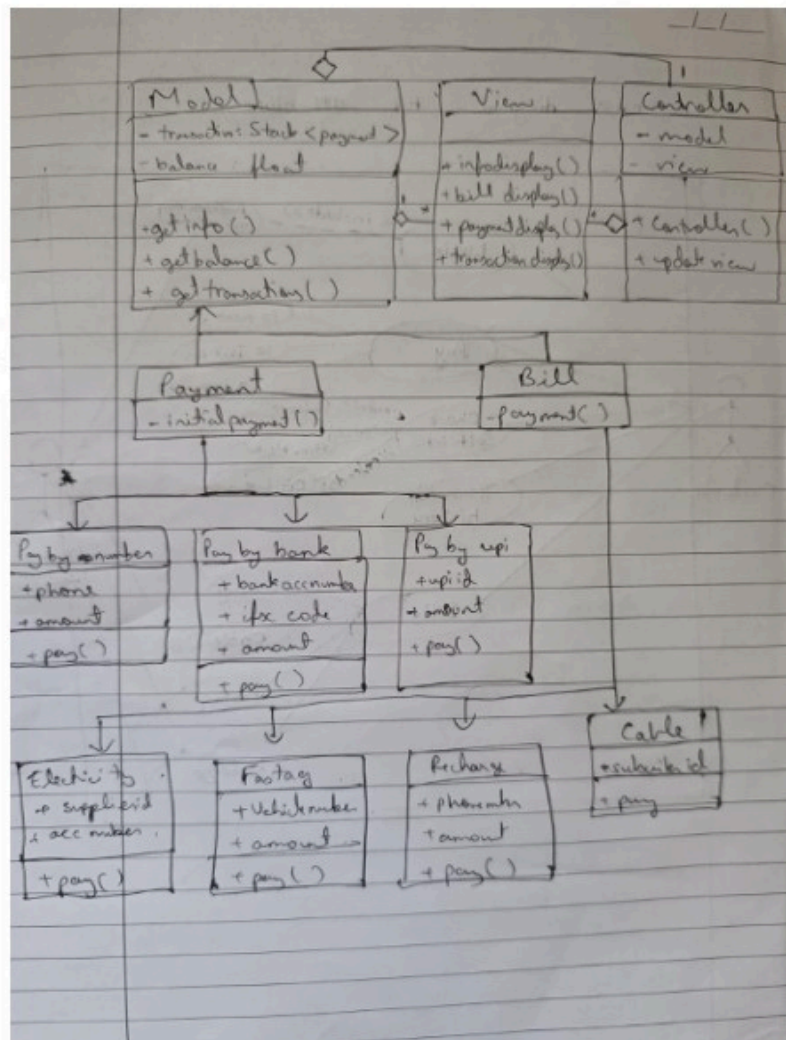 Model
- transaction: Stack <payment>
- balance: float
+ getinfo()
+ getbalance()
+ gettransactions()
View
+ infodisplay()
+ bill display()
+ paymentdisplay()
+ transactiondisplay()
1
Controller
- model
- view
+ Controller()
+ update view
Payment
- initialpayment()
Bill
- payment()
Pay by number
+ phone
+ amount
+ pay()
Pay by bank
+ bankaccnumber
+ ifsc code
+ amount
+ pay()
Pay by upi
+ upi id
+ amount
+ pay()
Electricity
+ supplierid
+ acc number
+ pay()
Fastag
+ Vehiclenumber
+ amount
+ pay()
Recharge
+ amount
+ pay()
Cable
+ pay